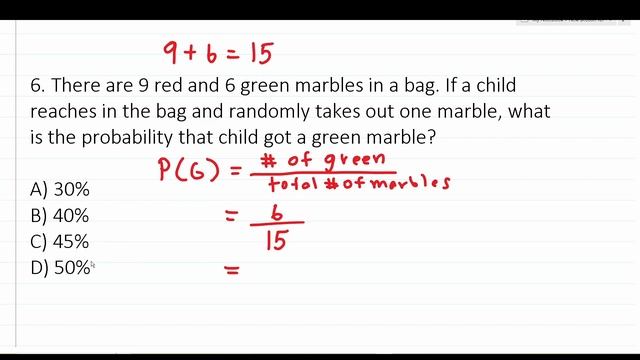 9 + 6 = 15
6. There are 9 red and 6 green marbles in a bag. If a child
reaches in the bag and randomly takes out one marble, what
is the probability that child got a green marble?
P(G) = # of green
total # of marbles
A) 30%
B) 40%
= 6
15
C) 45%
D) 50%
=